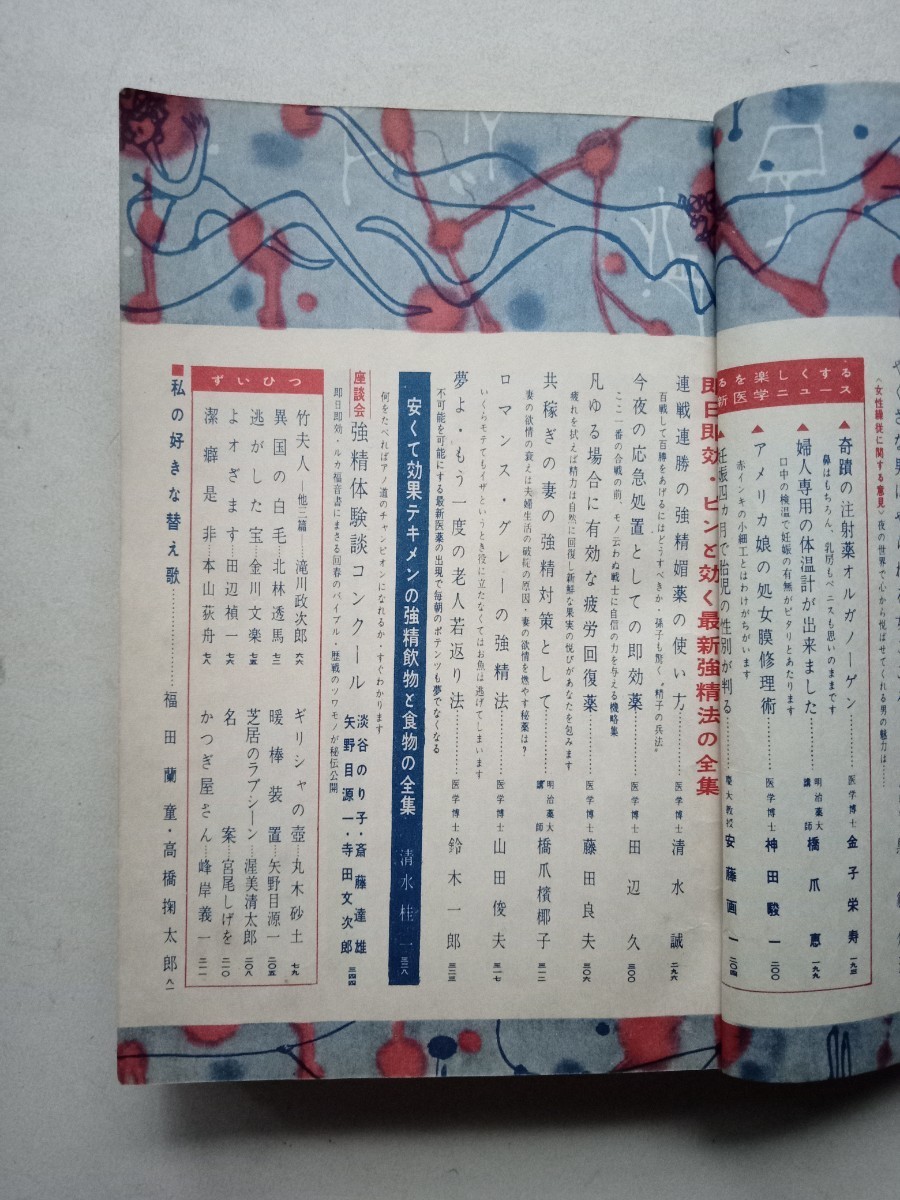 〈女性操従に関する意見〉夜の世界で心から悦ばせてくれる男の魅力は……
るを楽しくする
新医学ニュース
▲奇蹟の注射薬オルガノーゲン……医学博士 金子栄寿 一九三
鼻はもちろん、乳房もペニスも思いのままです
▲婦人専用の体温計が出来ました……明治薬大講師 橋爪恵 一九九
口中の検温で妊娠の有無がピタリとあたります
▲アメリカ娘の処女膜修理術……医学博士 神田駿一 二〇〇
赤インキの小細工とはわけがちがいます
▲妊娠四カ月で胎児の性別が判る……慶大教授 安藤画一 二〇四
即日即効・ピンと効く最新強精法の全集
連戦連勝の強精媚薬の使い方……医学博士 清水誠 二九六
百戦して百勝をあげるにはどうすべきか・孫子も驚く〝精子の兵法〟
今夜の応急処置としての即効薬……医学博士 田辺久 三〇〇
ここ一番の合戦の前、モノ云わぬ戦士に自信の力を与える機略集
凡ゆる場合に有効な疲労回復薬……医学博士 藤田良夫 三〇六
疲れを拭えば精力は自然に回復し新鮮な果実の悦びがあなたを包みます
共稼ぎの妻の強精対策として……明治薬大講師 橋爪檳椰子 三一二
妻の欲情の衰えは夫婦生活の破綻の原因・妻の欲情を燃やす秘薬は?
ロマンス・グレーの強精法……医学博士 山田俊夫 三一七
いくらモテてもイザというとき役に立たなくてはお魚は逃げてしまいます
夢よ・もう一度の老人若返り法……医学博士 鈴木一郎 三二三
不可能を可能にする最新医薬の出現で毎朝のポテンツも夢でなくなる
安くて効果テキメンの強精飲物と食物の全集 清水桂一 三二八
何をたべればアノ道のチャンピオンになれるか・すぐわかります
座談会 強精体験談コンクール 淡谷のり子・斎藤達雄
矢野目源一・寺田文次郎 三四四
即日即効・ルカ福音書にまさる回春のバイブル・歴戦のツワモノが秘伝公開
ずいひつ
竹夫人―他三篇……滝川政次郎 六六
異国の白毛……北林透馬 七三
逃がした宝……金川文楽 七五
よオざます……田辺禎一 七六
潔癖是非……本山荻舟 七八
ギリシャの壺……丸木砂土 七九
暖棒装置……矢野目源一 二〇五
芝居のラブシーン……渥美清太郎 二〇八
名案……宮尾しげを 二一〇
かつぎ屋さん……峰岸義一 二一一
■私の好きな替え歌……福田蘭童・高橋掬太郎 八一